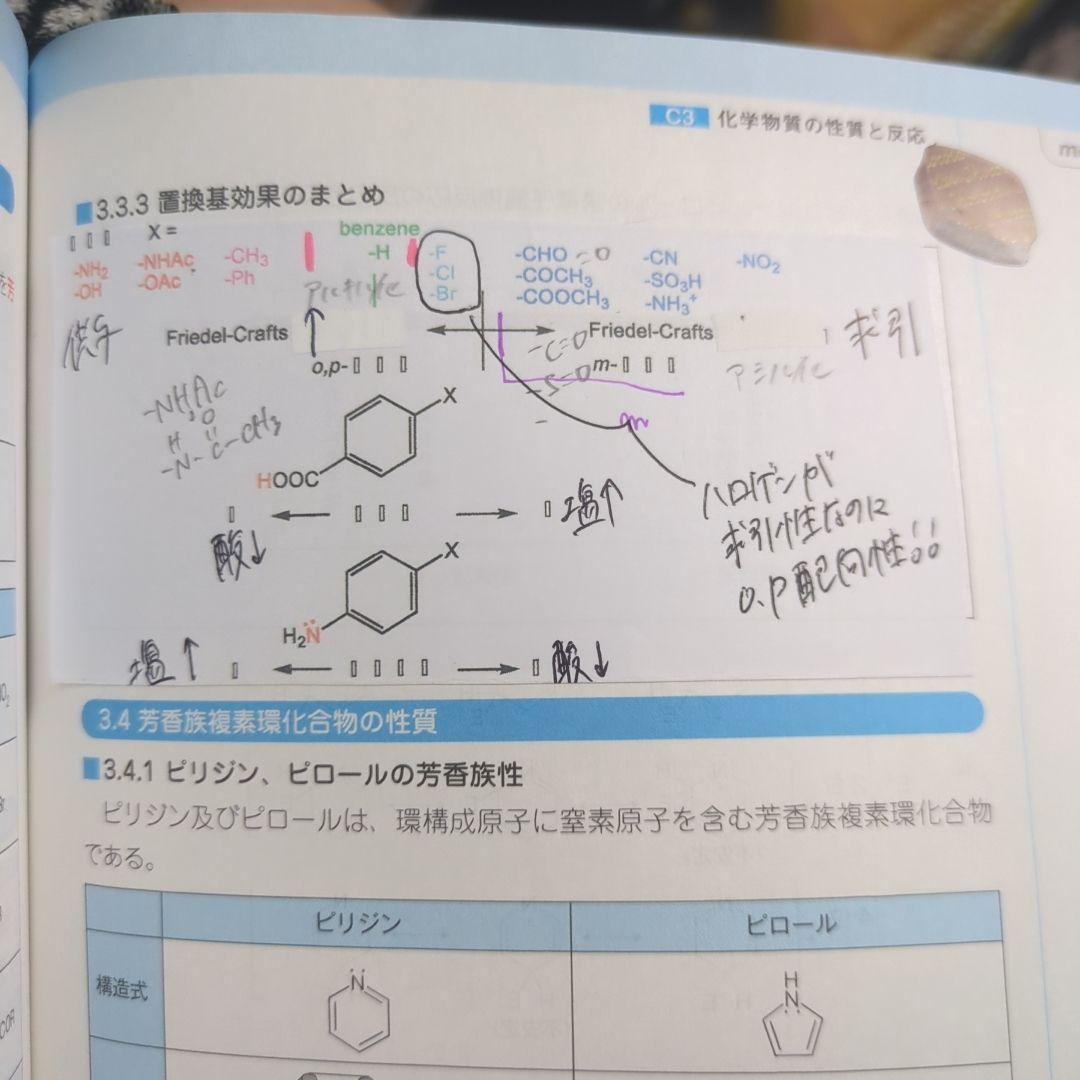 C3 化学物質の性質と反応
3.3.3 置換基効果のまとめ
X =
benzene
-NH2
-OH
-NHAc
-OAc
-CH3
-Ph
-H
-F
-Cl
-Br
-CHO =O
-COCH3
-COOCH3
-CN
-SO3H
-NH3+
-NO2
供与
Friedel-Crafts
Friedel-Crafts
求引
o,p-
m-
-C=O
-S=O
-NHAc
H O
-N-C-CH3
X
HOOC
酸↓
塩↑
ハロゲンが
求引性なのに
o.p配向性!!
X
H2N
塩↑
酸↓
3.4 芳香族複素環化合物の性質
3.4.1 ピリジン、ピロールの芳香族性
ピリジン及びピロールは、環構成原子に窒素原子を含む芳香族複素環化合物
である。
ピリジン
ピロール
構造式
N
H
N